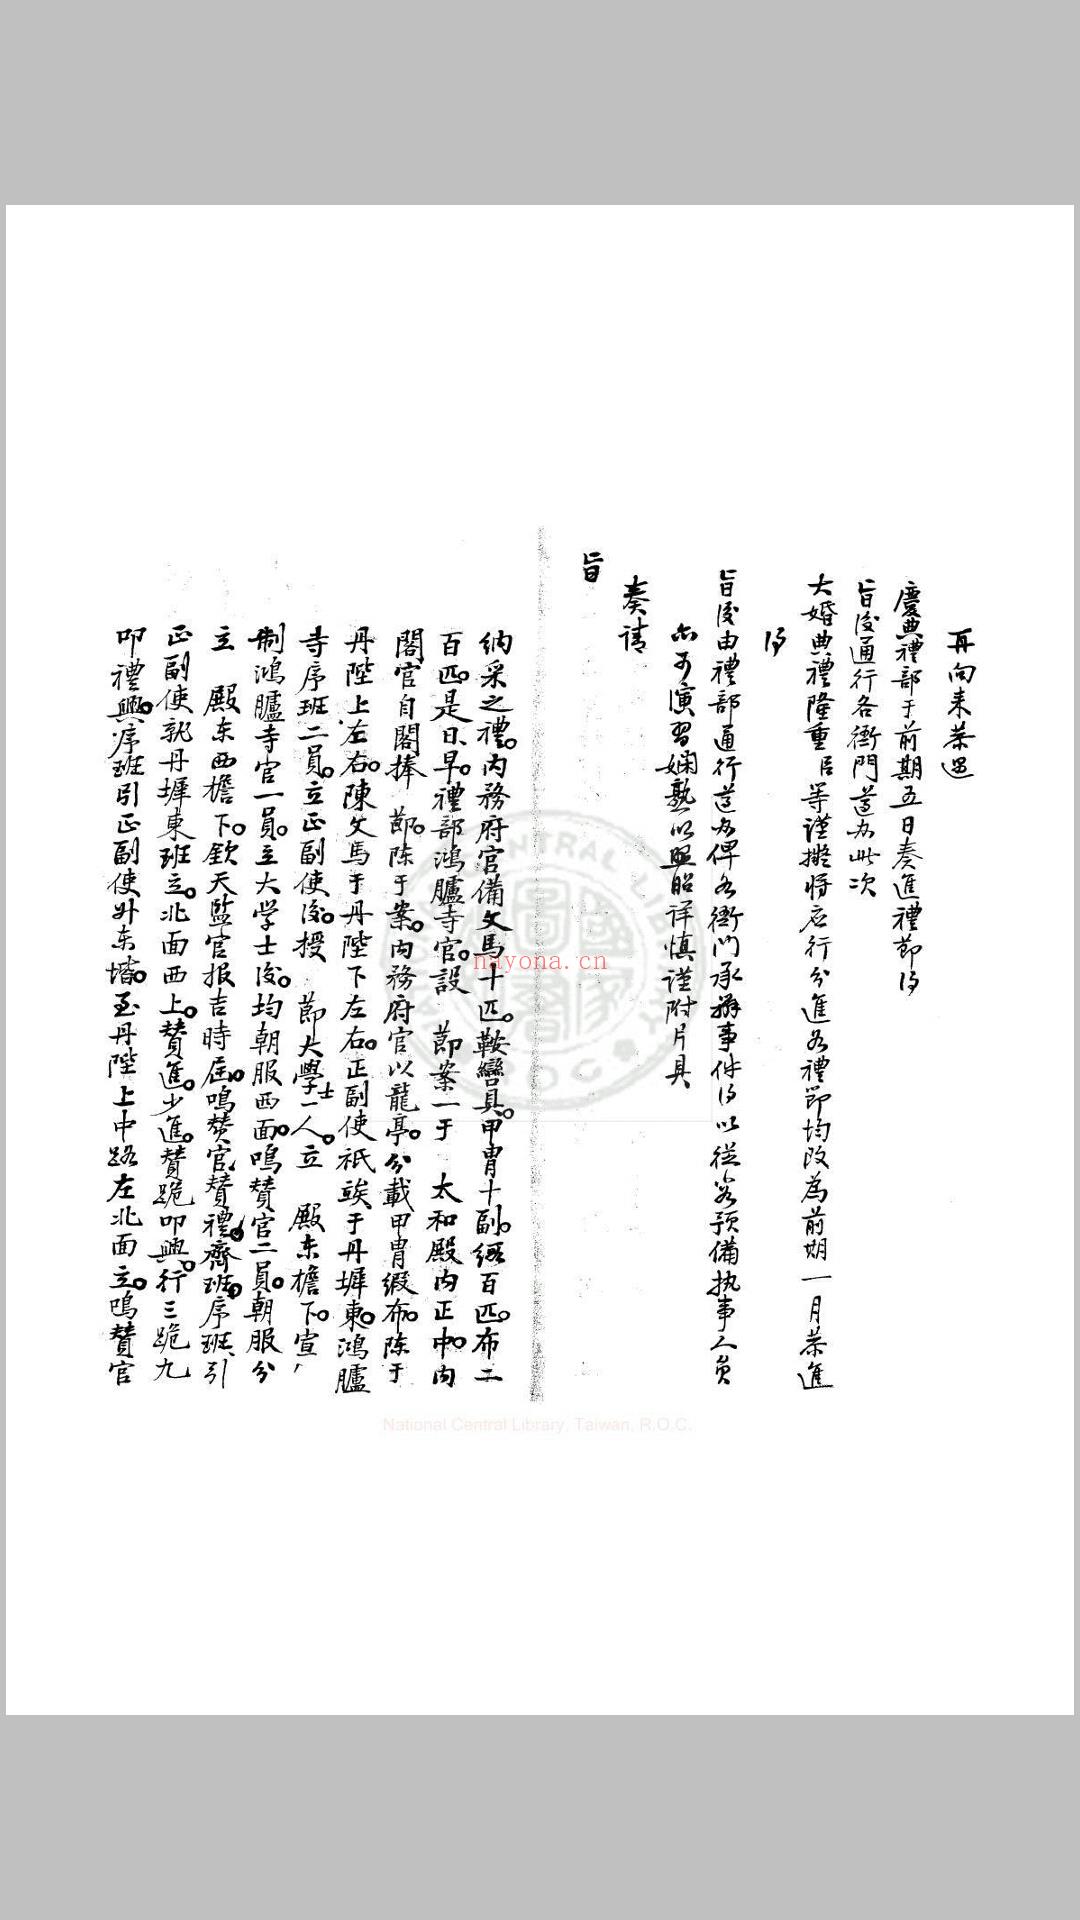 再向来恭遇
慶典禮部于前期五日奏進禮節得
旨後通行各衙門遵办此次
大婚典禮隆重臣等謹擬将应行分進各禮節均改為前期一月恭進
得
旨後由禮部通行遵办俾各衙门承辦事件得以從容預備执事人員
亦可演習嫻熟以照昭祥慎謹附片具
奏請
旨
納采之禮。内務府官備文馬十匹。鞍轡具。甲胄十副。緞百匹。布二
百匹。是日、早。禮部鴻臚寺官。設 節案一于 太和殿内正中。内
閣官自閣捧 節。陈于案。内務府官以龍亭。分載甲胄緞布。陈于
丹陛上左右。陳文馬于丹陛下左右。正副使祇竢于丹墀東。鴻臚
寺序班二員。立正副使後。授 節大學士一人。立 殿东檐下。宣
制鴻臚寺官一員。立大学士後。均朝服西面。鳴贊官二員。朝服分
立 殿东西檐下。欽天監官报吉時届。鳴贊官、贊禮。齊班。序班、引
正副使就丹墀東班立。北面西上。贊進。少進。贊跪叩興。行三跪九
叩禮。興。序班引正副使升东堦。至丹陛上中路左北面立。鳴贊官
National Central Library, Taiwan, R.O.C.
CENTRAL LIBRARY
R.O.C
nayona.cn